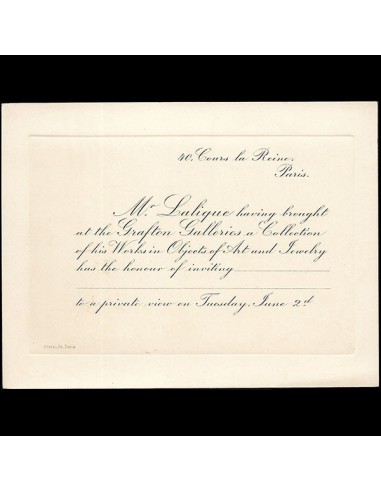 40, Cours la Reine.
Paris.
Mr Lalique having brought
at the Grafton Galleries a Collection
of his Works in Objects of Art and Jewelry
has the honour of inviting
to a private view on Tuesday, June 2d